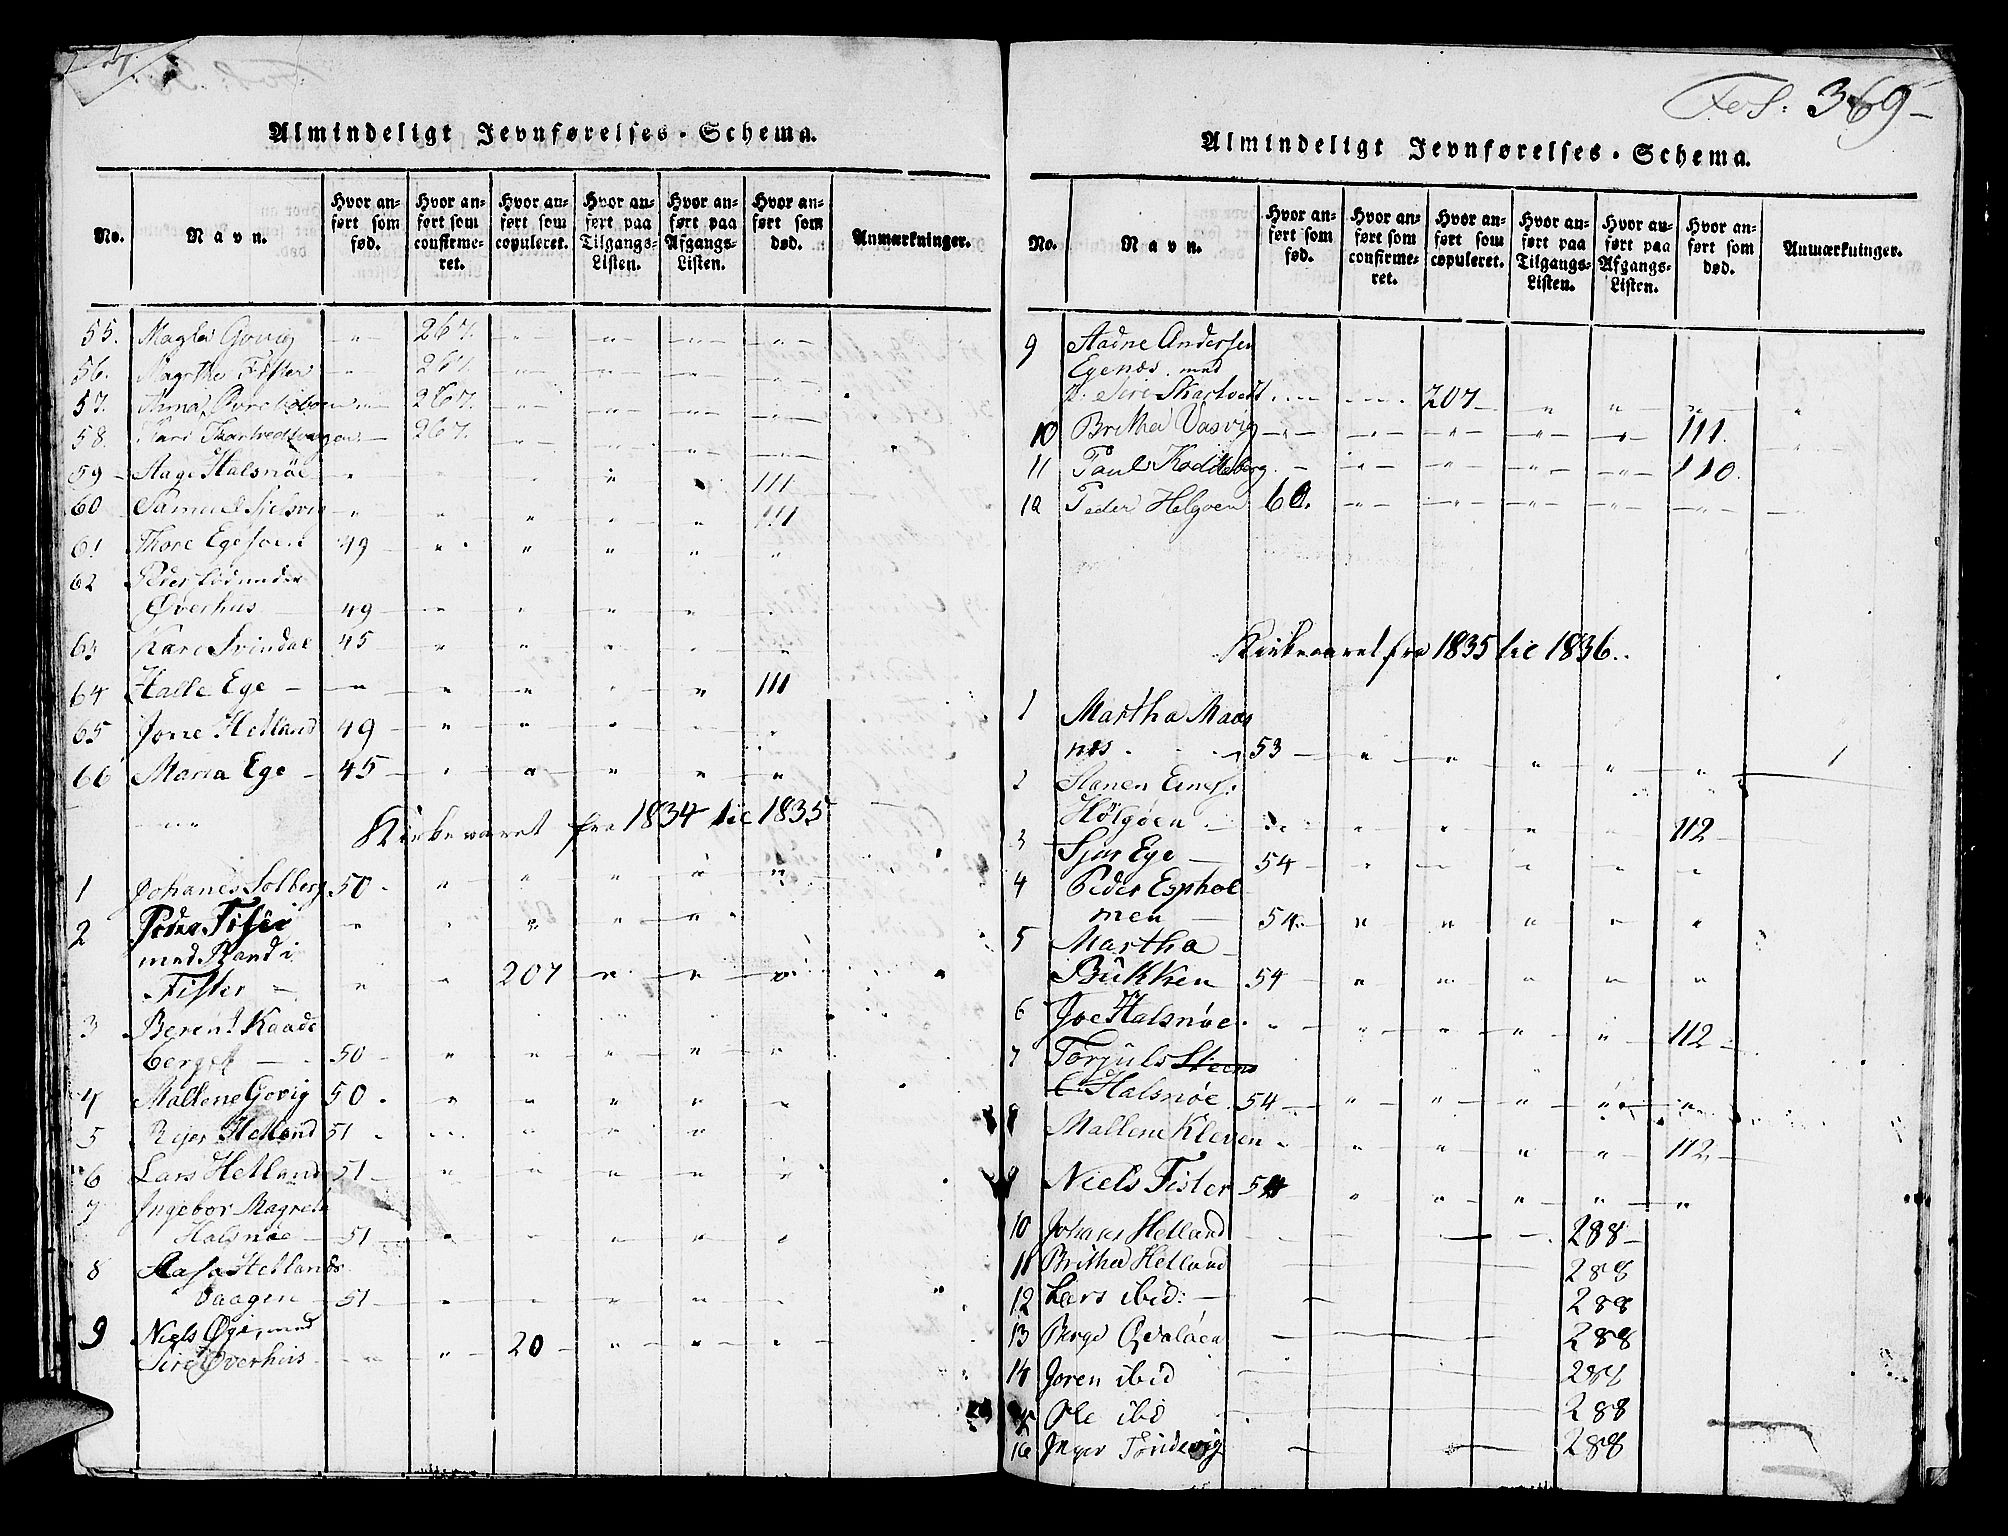 Almindeligt Jevnførelses-Schema.
No. Navn. Hvor anført som fød. Hvor anført som confirmeret. Hvor anført som copuleret. Hvor anført paa Tilgangs-Listen. Hvor anført paa Afgangs-Listen. Hvor anført som død. Anmærkninger.
55. Magla Govig 267.
56. Magrtha Fister 267.
57. Anna 267.
58. Kari 267.
59 Aage Halsnöe 111
60 Samuel 111
61 Thore 49
62 Peder
Øverhus 49
63 Kari Svindal 45
64 Halle Ege 111
65 Jone Helland 49
66 Maria Ege 45
Kirkevaret fra 1834 til 1835
1 Johanes Solberg 50
2 Peder
med Randi
Fister 207
3 Berent Kaade
berget 50
4 Mallene Govig 50
5 Rejer Helland 51
6 Lars Helland 51
7 Ingebor Magreta
Halsnøe 51
8 Aasa Hellands
Vaagen 51
9 Niels Øye, med
Siri Øverhus 20
Fol: 369
Almindeligt Jevnførelses-Schema.
No. Navn. Hvor anført som fød. Hvor anført som confirmeret. Hvor anført som copuleret. Hvor anført paa Tilgangs-Listen. Hvor anført paa Afgangs-Listen. Hvor anført som død. Anmærkninger.
9 Aadne Andersen
Egenæs med
Siri Skartvedt 207
10 Britha Vasvig 111.
11 Paul Kaddeberg 110.
12 Peder Helgøen 60.
Kirkevaret fra 1835 til 1836.
1 Martha Maas
nes 53
2 Hanen
Hølgøen 112
3 Sjur Ege 54
4 Peder Esphol
men 54
5 Martha
Bukken 54
6 Joe Halsnøe 112
7 Torjuls
Halsnøe 54
8 Mallene Kleven 112
9 Niels Fister 54
10 Johanes Helland 288
11 Britha Helland 288
12 Lars ibid: 288
13 Berge Qvaløen 288
14 Joren ibid 288
15 Ole ibd 288
16 Inger Tøndevig 288